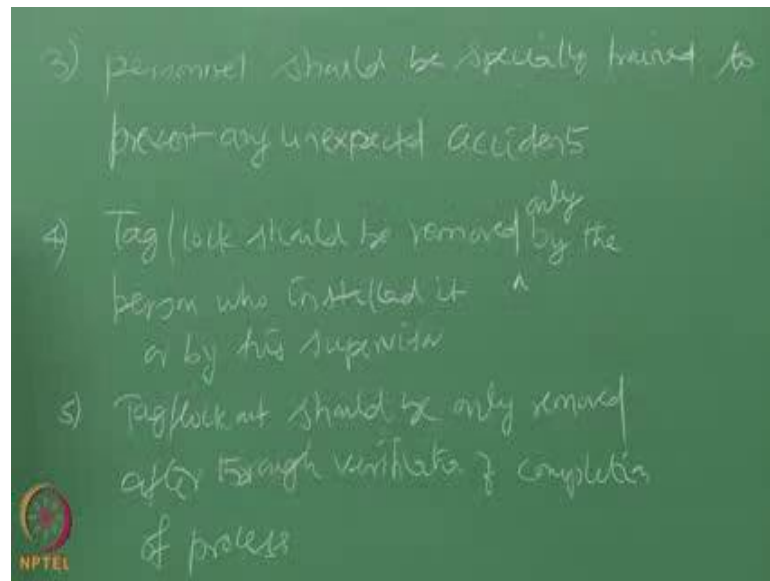 3) personnel should be specially trained to
prevent any unexpected accidents
only
4) Tag/lock should be removed by the
person who installed it ^
or by his supervisor
5) Tag/lock out should be only removed
after through verification of completion
of process
NPTEL